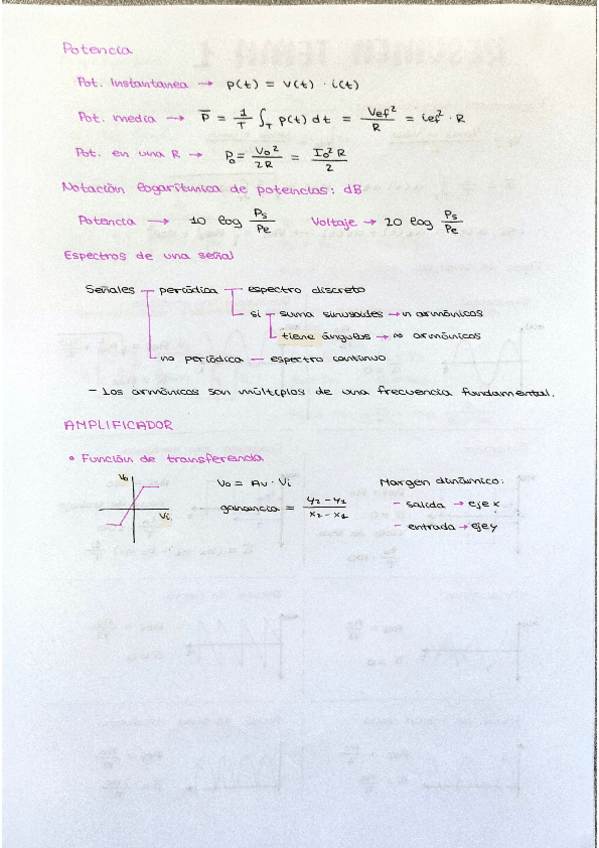 Potencia
Pot. Instantanea → p(t) = v(t) · i(t)
Pot. media → P̅ = 1/T ∫_T p(t) dt = Vef²/R = ief² · R
Pot. en una R → P₀ = V₀²/2R = I₀² R/2
Notación logarítmica de potencias: dB
Potencia → 10 log Ps/Pe Voltaje → 20 log Ps/Pe
Espectros de una señal
Señales periódica espectro discreto
si suma sinusoides → n armónicos
tiene ángulos → ∞ armónicos
no periódica — espectro continuo
– Los armónicos son múltiplos de una frecuencia fundamental.
AMPLIFICADOR
• Función de transferencia
Vo
Vi
Vo = Av · Vi
ganancia = y₂ – y₁/x₂ – x₁
Margen dinámico:
– salida → eje x
– entrada → eje y